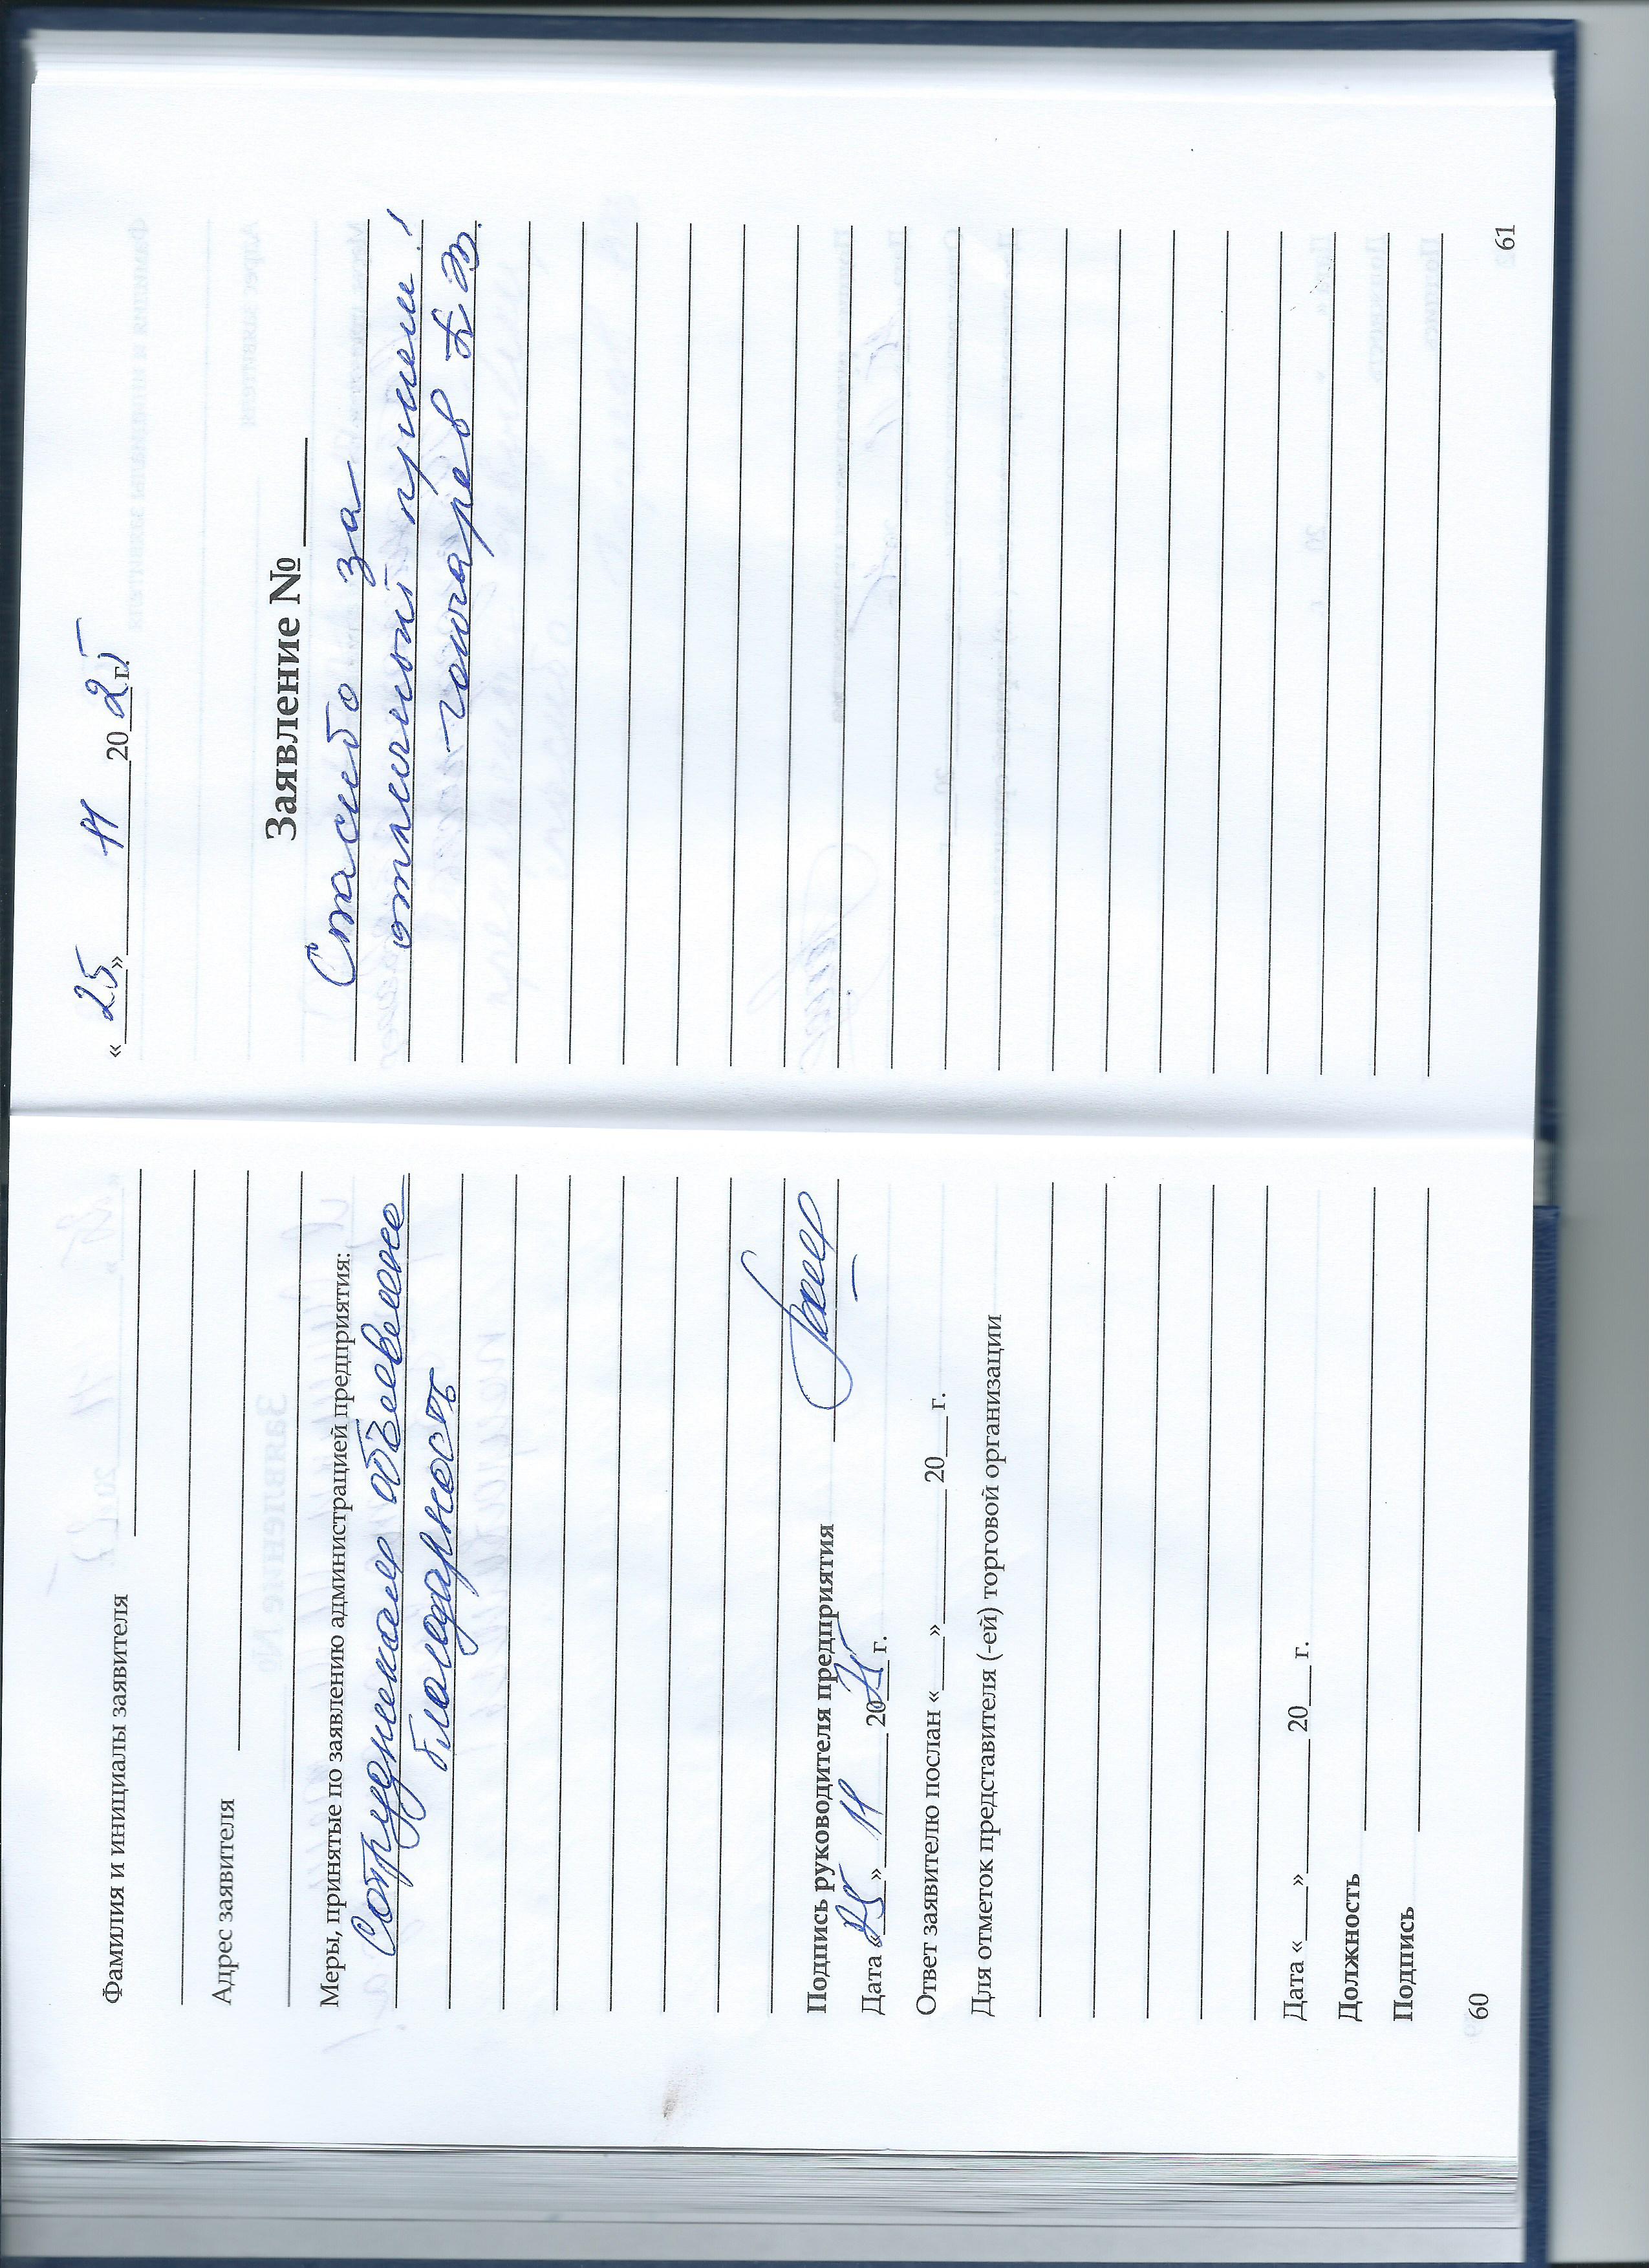 Фамилия и инициалы заявителя
Адрес заявителя
Меры, принятые по заявлению администрацией предприятия:
Сотрудникам объявлена
благодарность
Подпись руководителя предприятия
Дата «25» 11 2025 г.
Ответ заявителю послан «___» ______ 20__ г.
Для отметок представителя (-ей) торговой организации
Дата «___» ______ 20__ г.
Должность
Подпись
60
«25» 11 2025 г.
Заявление №
Спасибо за
отличный прием!
61